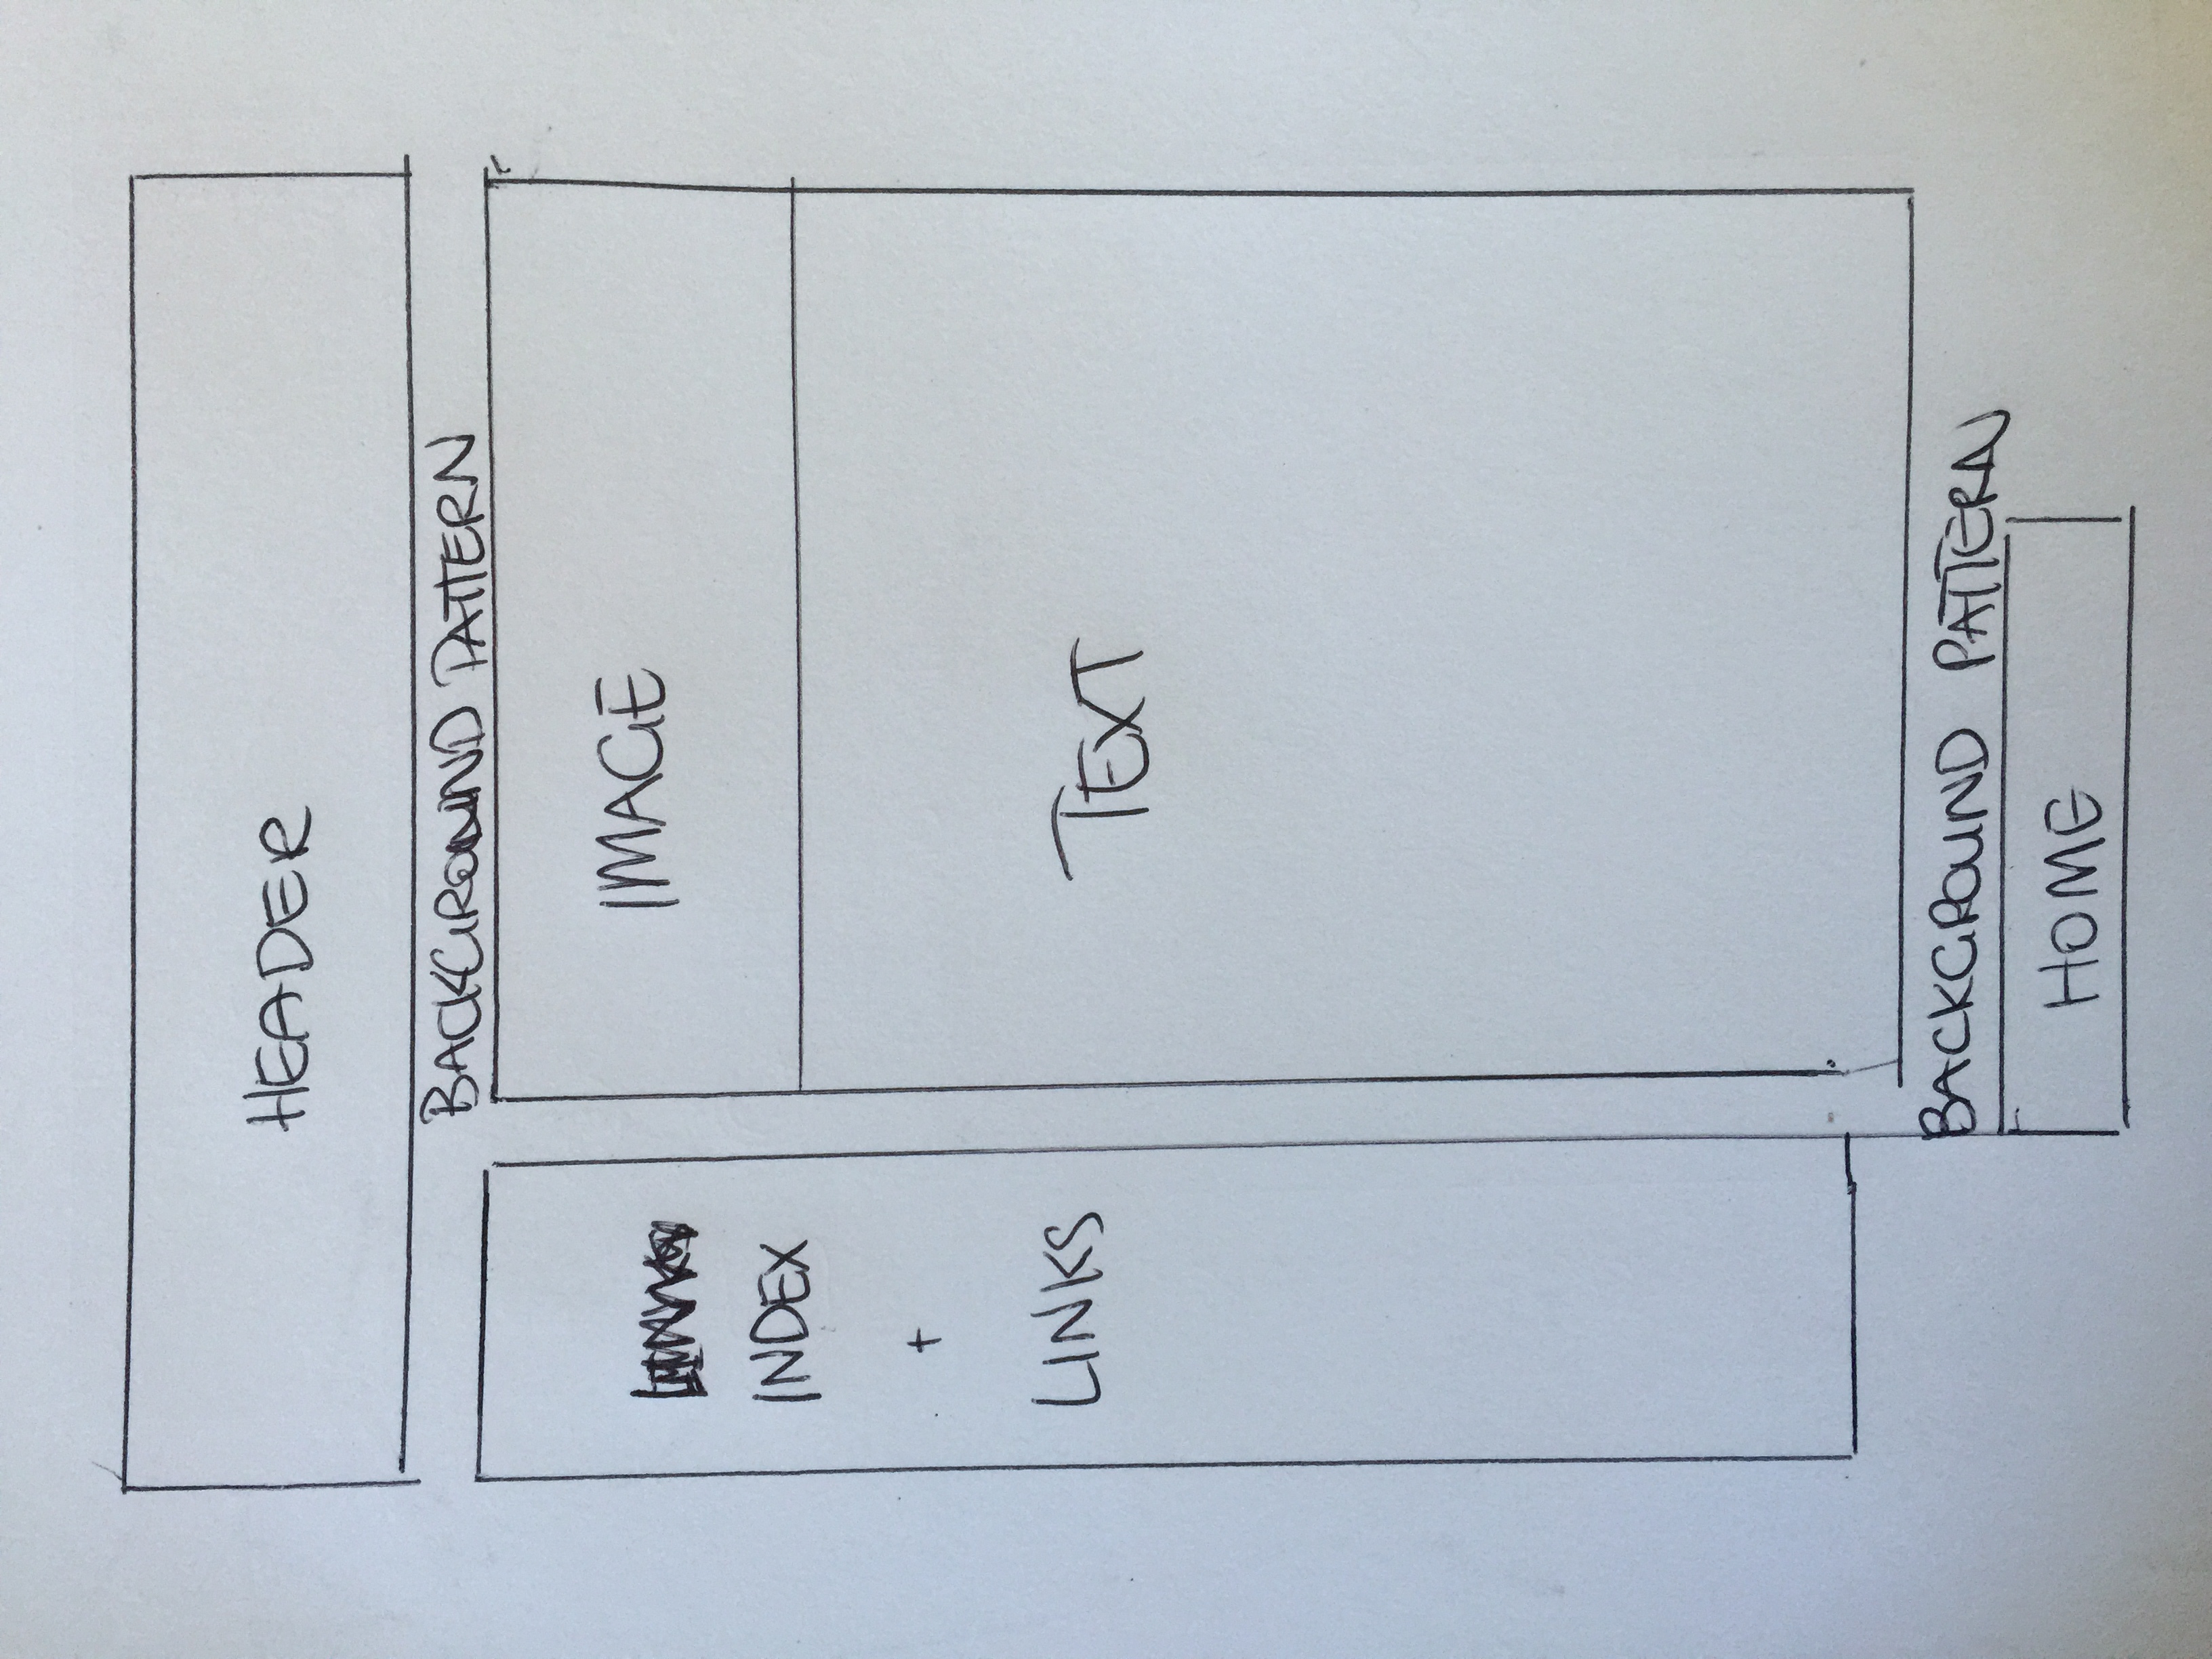 HEADER
BACKGROUND PATTERN
IMAGE
INDEX
+
LINKS
TEXT
BACKGROUND PATTERN
HOME